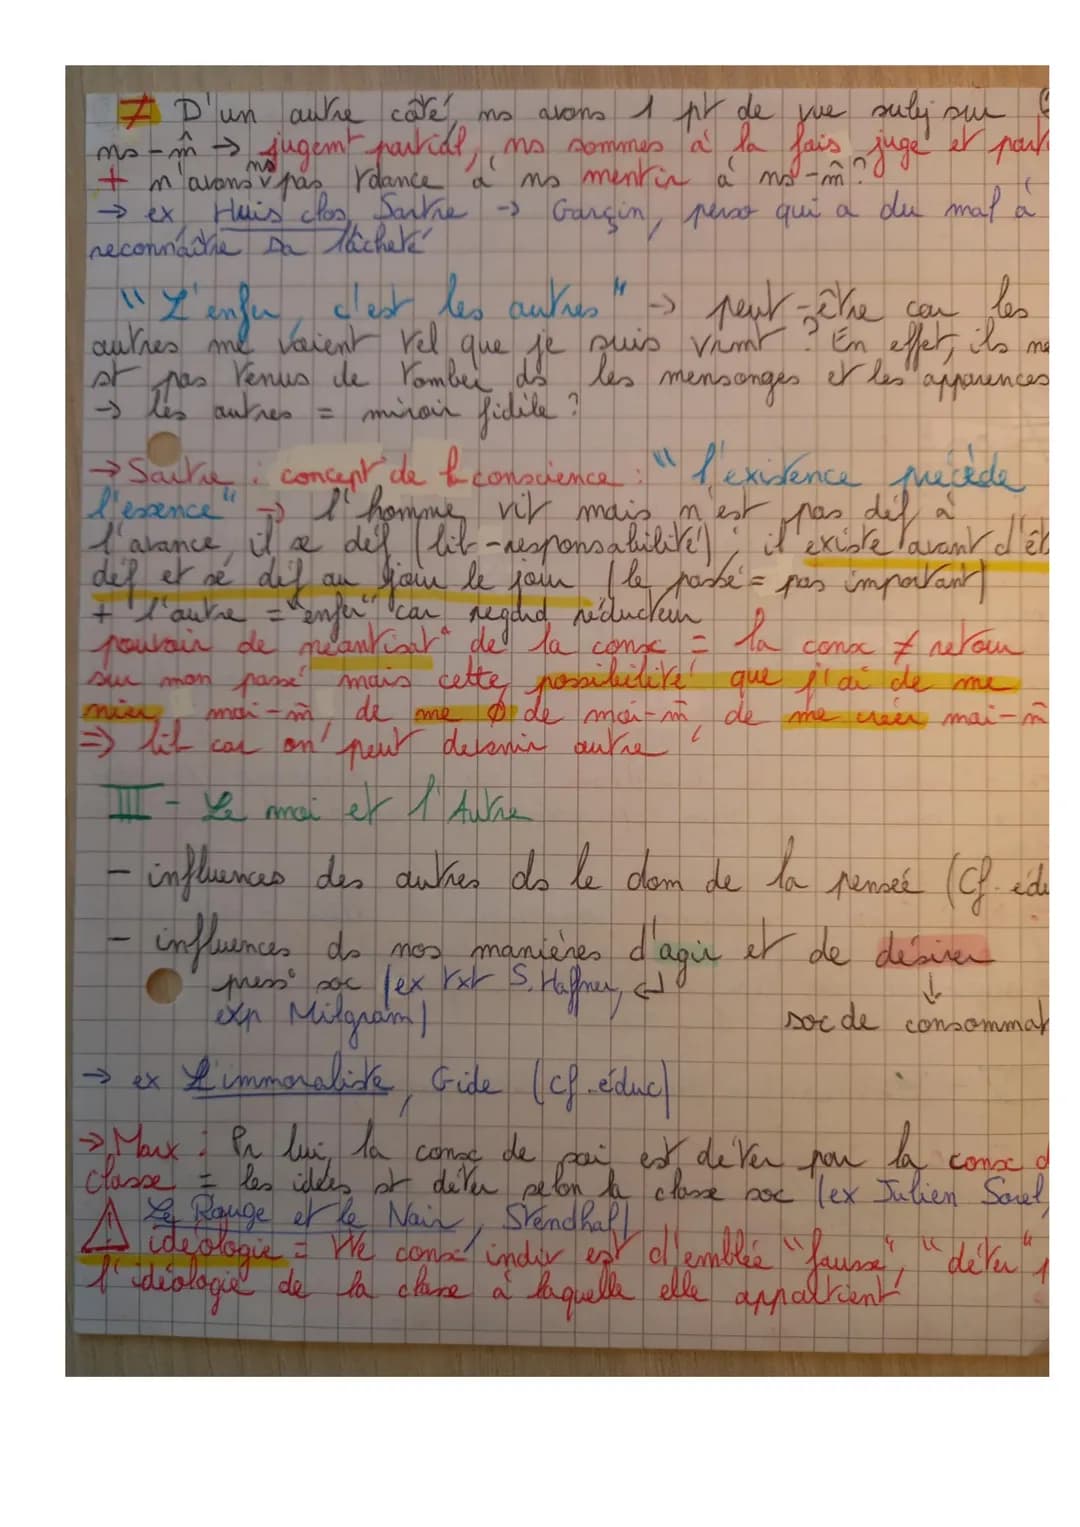 ≠ D'un autre côté, ns avons 1 pt de vue subj sur
ns-m̂ → jugemt partial, ns sommes à la fois juge et part
+ n'avons ns pas tdance à ns mentir à ns-m̂ ?
→ ex Huis clos, Sartre → Garçin, perso qui a du mal à
reconnaître sa lâcheté
"L'enfer, c'est les autres" → peut-être car les
autres me voient tel que je suis vrmt ? En effet, ils ne
st pas tenus de tomber ds les mensonges et les apparences
→ les autres = miroir fidèle ?
→ Sartre : concept de la conscience : "l'existence précède
l'essence" → l'homme vit mais n'est pas déf à
l'avance, il se déf (lib-responsabilité) ; il existe avant d'êt
déf et se déf au jour le jour (le passé = pas important)
+ l'autre = "enfer" car regard réducteur
pouvoir de néantisat° de la consc = la consc ≠ retour
sur mon passé mais cette possibilité que j'ai de me
nier moi-m̂, de me ∅ de moi-m̂, de me créer moi-m̂
⇒ lib car on peut devenir autre
III - Le moi et l'Autre
- influences des autres ds le dom de la pensée (Cf. édu
- influences ds nos manières d'agir et de désirer
press° soc (ex txt S. Haffner, ↵ ↓
exp Milgram) soc de consommat
→ ex L'immoraliste, Gide (cf. éduc)
→ Marx : Pr lui, la consc de soi est déter par la consc d
classe = les idées st déter selon la classe soc (ex Julien Sorel,
⚠ Le Rouge et le Noir, Stendhal)
idéologie = tte consc indiv est d'emblée "fausse", "déter"
l'idéologie de la classe à laquelle elle appartient